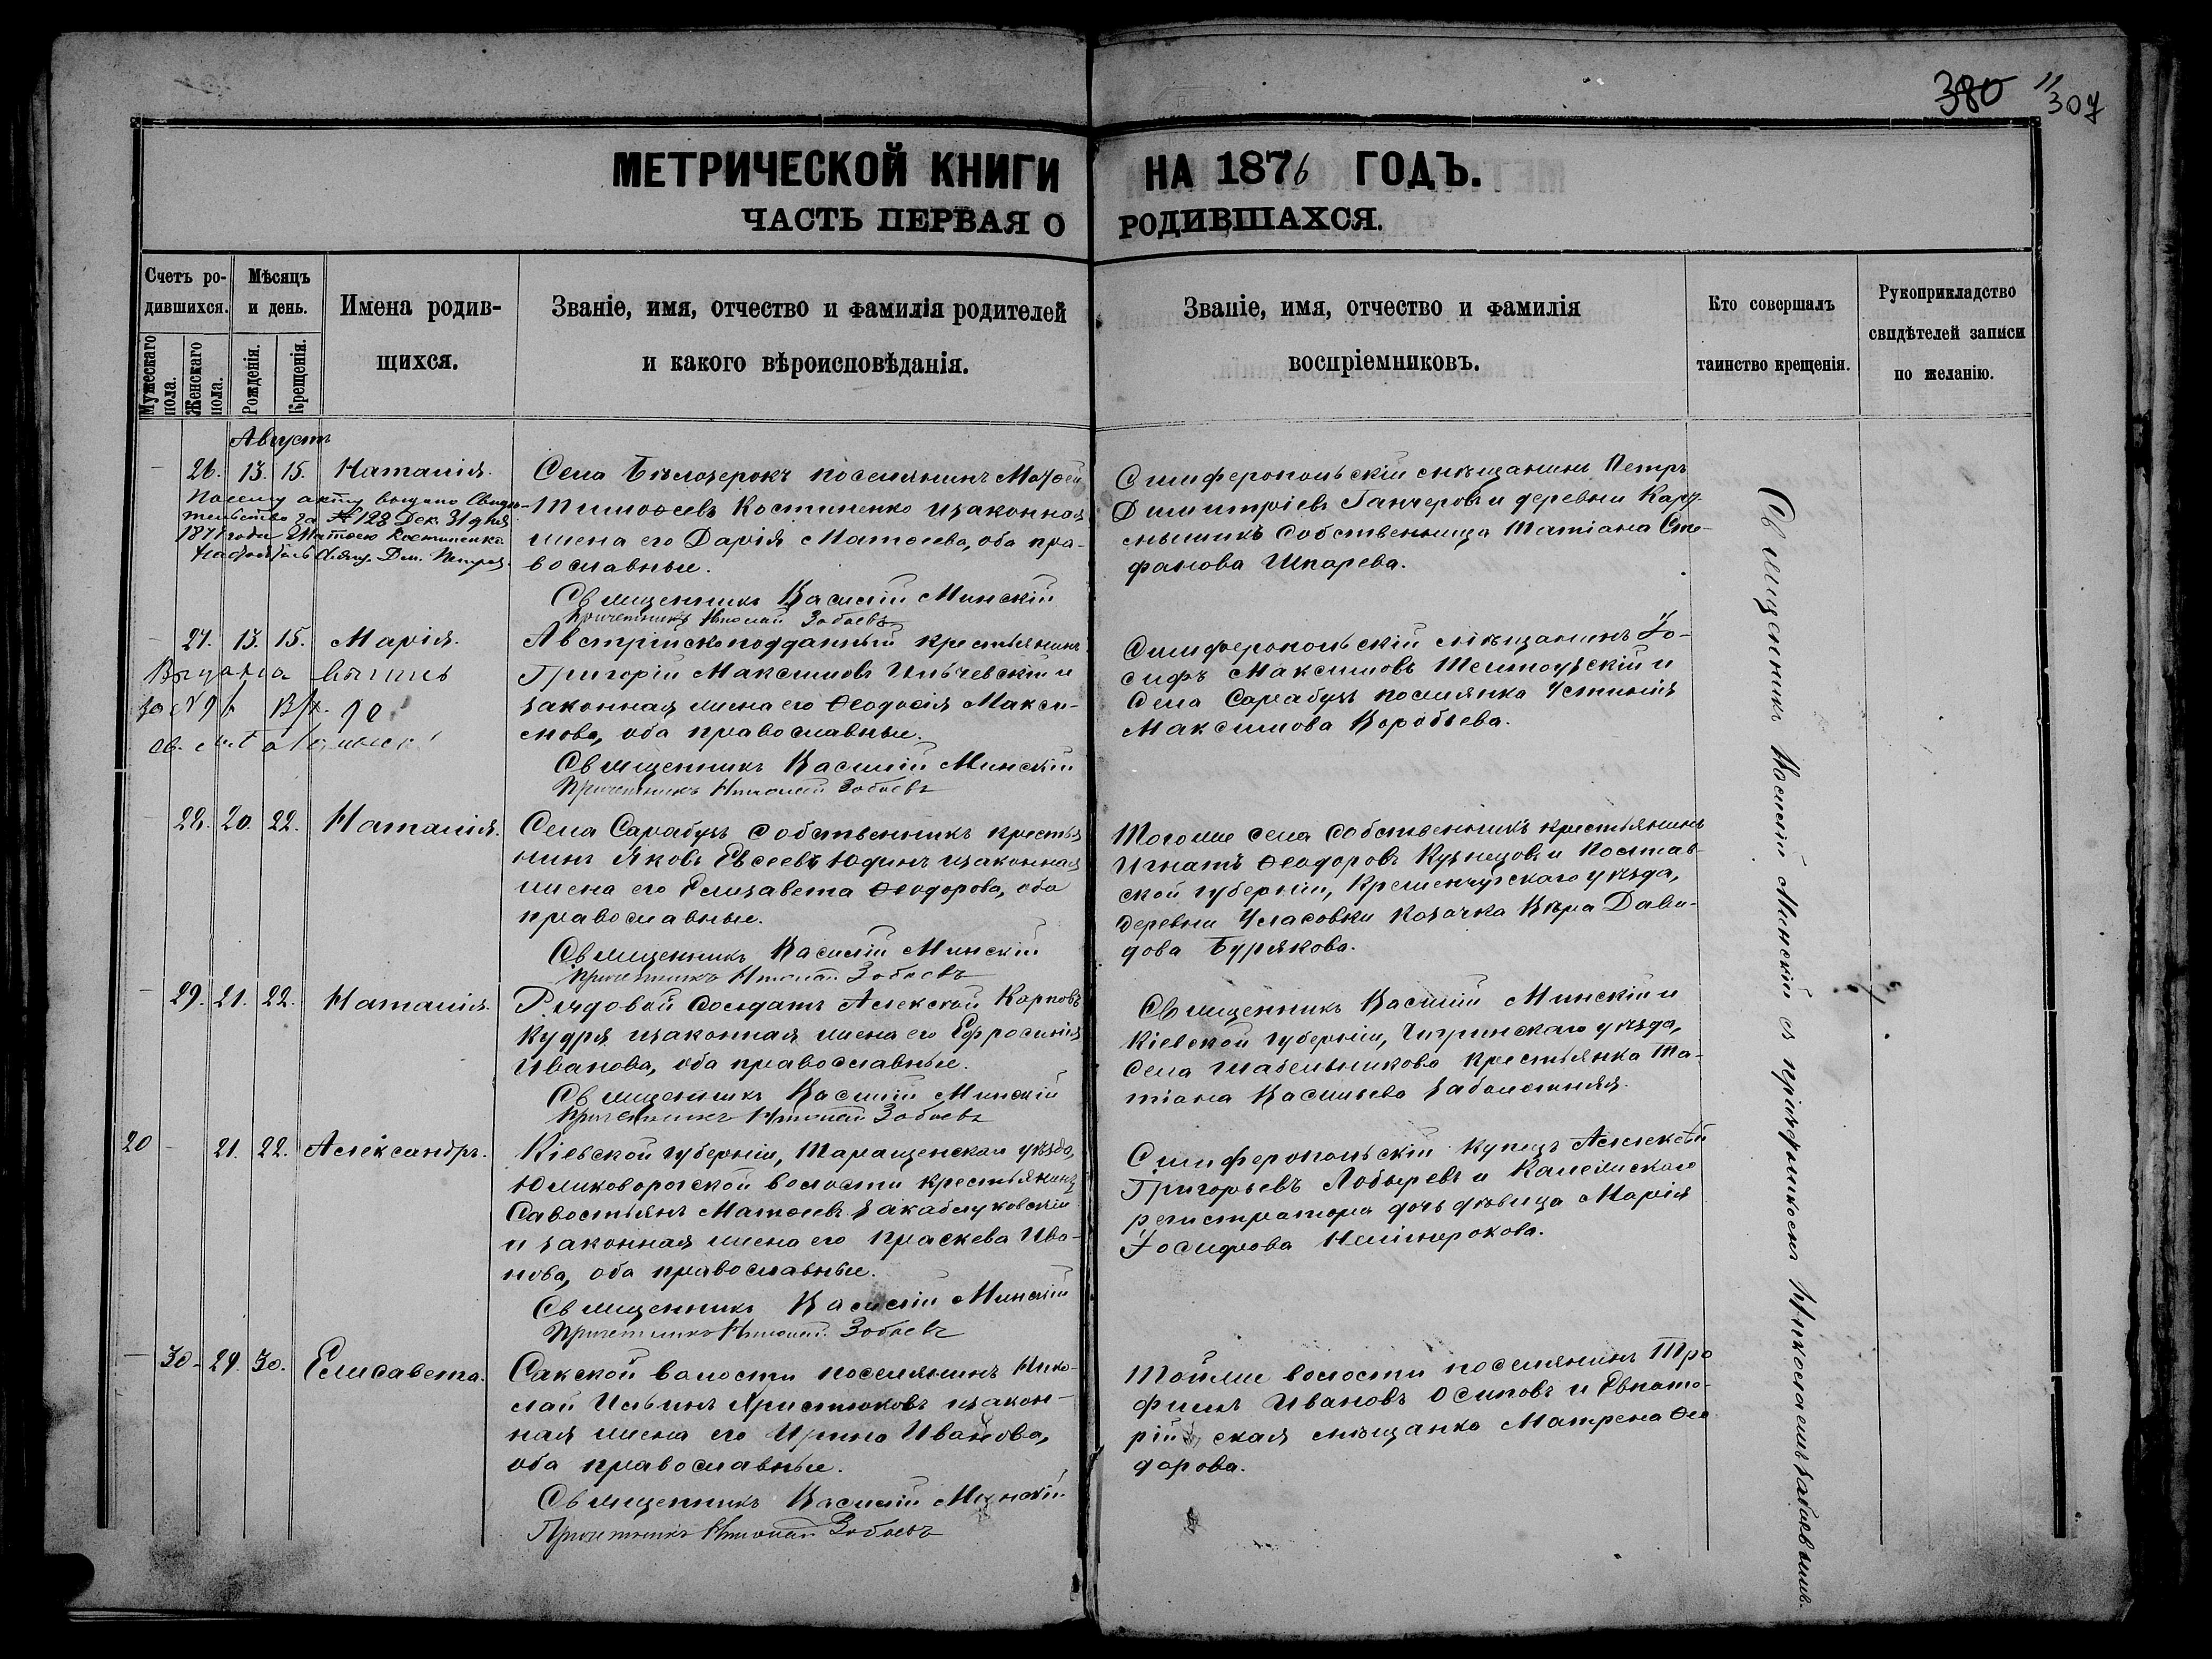 380 307
МЕТРИЧЕСКОЙ КНИГИ НА 1876 ГОДЪ.
ЧАСТЬ ПЕРВАЯ О РОДИВШАХСЯ.
Счетъ родившихся.
Мужескаго пола.
Женскаго пола.
Мѣсяцъ и день.
Рожденія.
Крещенія.
Имена родив-
щихся.
Званіе, имя, отчество и фамилія родителей
и какого вѣроисповѣданія.
Званіе, имя, отчество и фамилія
воспріемниковъ.
Кто совершалъ
таинство крещенія.
Рукоприкладство
свидѣтелей записи
по желанію.
Августъ
26. 13. 15. Наталія.
По сему акту выдано Свиде-
тельство за № 128 Дек. 31 дня
Села Бѣлозерокъ поселянинъ Матѳей
Тимоѳеевъ Костиненко и законная
жена его Дарія Матѳеева, оба пра-
вославные.
Священникъ Василій Минскій
Причетникъ Николай Зобаевъ
Симферопольскій мѣщанинъ Петръ
Димитріевъ Ганчеровъ и деревни Кару-
собственница Татіана Сте-
фанова Шпарева.
27. 13. 15. Марія.
Выдана выпись
Австрійскоподданный крестьянинъ
Григорій Максимовъ Ильчевскій и
законная жена его Ѳеодосія Макси-
мова, оба православные.
Священникъ Василій Минскій
Причетникъ Николай Зобаевъ
Симферопольскій мѣщанинъ Іо-
сифъ Максимовъ и
Села Сарабузъ поселянка Устинія
Максимова Воробьева.
28. 20. 22. Наталія.
Села Сарабузъ собственникъ крестья
нинъ Яковъ Евсеевъ Юдинъ и законная
жена его Елизавета Ѳеодорова, оба
православные.
Священникъ Василій Минскій
Причетникъ Николай Зобаевъ
Того же села собственникъ крестьянинъ
Игнатъ Ѳеодоровъ Кузнецовъ и Полтав-
ской губерніи, Кременчугскаго уѣзда,
деревни Уласовки козачка Вѣра Дави-
дова Бурякова.
29. 21. 22. Наталія.
Рядовой солдатъ Алексѣй Карповъ
Кудря и законная жена его Ефросинія
Иванова, оба православные.
Священникъ Василій Минскій
Причетникъ Николай Зобаевъ
Священникъ Василій Минскій и
Кіевской губерніи, Чигринскаго уѣзда,
Села Шабельникова крестьянка Та-
тіана Васильева Заболотняя.
20 21. 22. Александръ.
Кіевской губерніи, Таращенскаго уѣзда,
волости крестьянинъ
Савостьянъ Матѳеевъ Закаблуковскій
и законная жена его Праскева Ива-
нова, оба православные.
Священникъ Василій Минскій
Причетникъ Николай Зобаевъ
Симферопольскій купецъ Алексѣй
Григорьевъ Лобыревъ и Коллежскаго
регистратора дочь дѣвица Марія
Іосифова
30. 29. 30. Елисавета.
Сакской волости поселянинъ Нико-
лай Ильинъ Христюковъ и закон-
ная жена его Ирина Иванова,
оба православные.
Священникъ Василій Минскій
Причетникъ Николай Зобаевъ
Той же волости поселянинъ Тро
фимъ Ивановъ Осиповъ и Евпато-
рійская мѣщанка Матрена Ѳео
дорова.
Священникъ Василій Минскій съ причетникомъ Николаемъ Зобаевымъ.